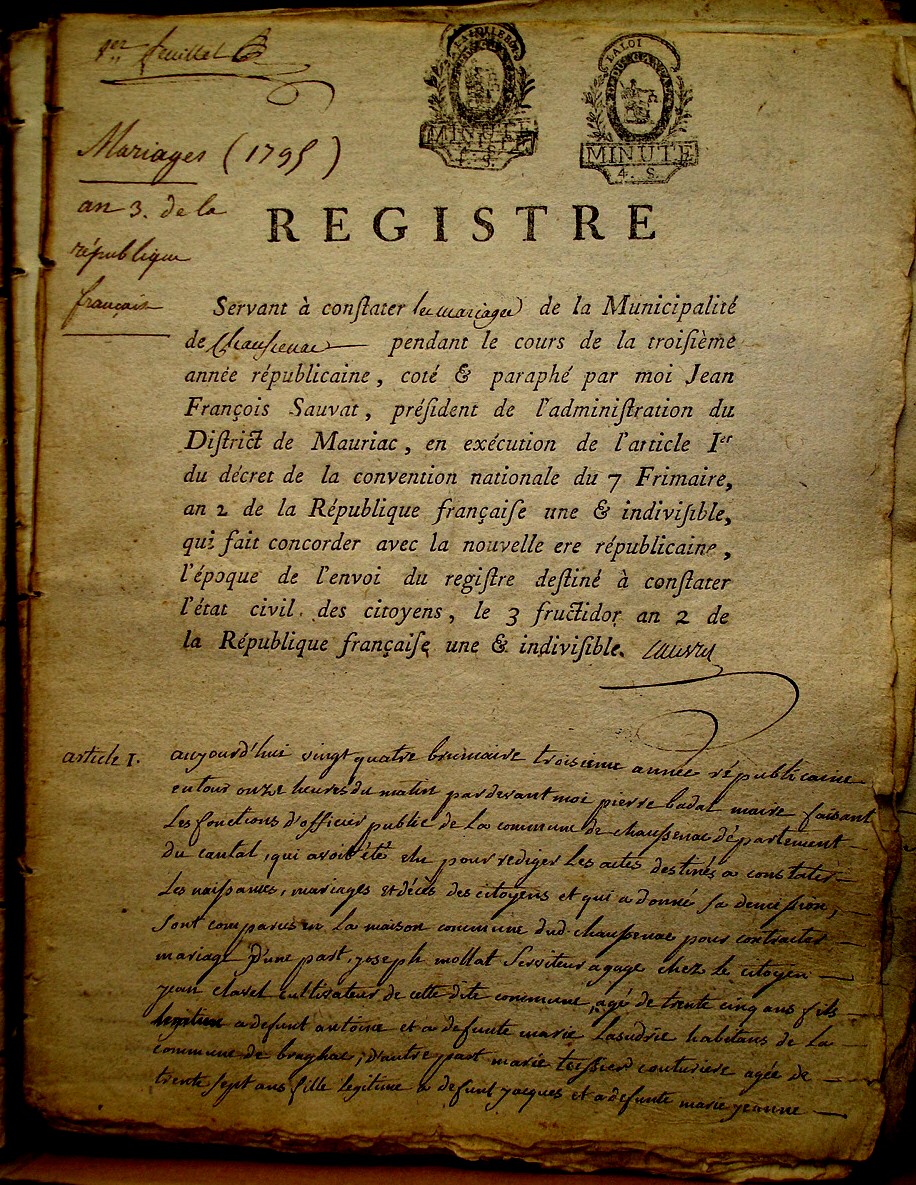 1er feuillet
LA LOI
MINUTE
4. S.
LA LOI
MINUTE
4. S.
Mariages (1795)
an 3. de la
république
française
REGISTRE
Servant à conſtater les mariages de la Municipalité
de Chaussenac pendant le cours de la troiſième
année républicaine, coté & paraphé par moi Jean
François Sauvat, préſident de l'adminiſtration du
Diſtrict de Mauriac, en exécution de l'article Ier
du décret de la convention nationale du 7 Frimaire,
an 2 de la République françaiſe une & indiviſible,
qui fait concorder avec la nouvelle ere républicaine,
l'époque de l'envoi du regiſtre deſtiné à conſtater
l'état civil des citoyens, le 3 fructidor an 2 de
la République françaiſe une & indiviſible.
article 1. aujourd'hui vingt quatre brumaire troisieme année républicaine
entour onze heures du matin pardevant moi pierre badal maire faisant
Les fonctions d'officier public de La commune de chaussenac département
du cantal, qui avoit été elu pour rediger Les actes destinés a constater
Les naissances, mariages et décès des citoyens et qui a donné sa demission,
sont comparus en La maison commune dud. chaussenac pour contracter
mariage D'une part, joseph mollat Serviteur a gage chez Le citoyen
jean clavel cultivateur de cette dite commune, agé de trente cinq ans fils
legitime a defunt antoine et a defunte marie Lasudrie habitans de La
commune de braghac, D'autre part marie teissier couturiere agée de
trente sept ans fille legitime a defunt jacques et a defunte marie jeanne